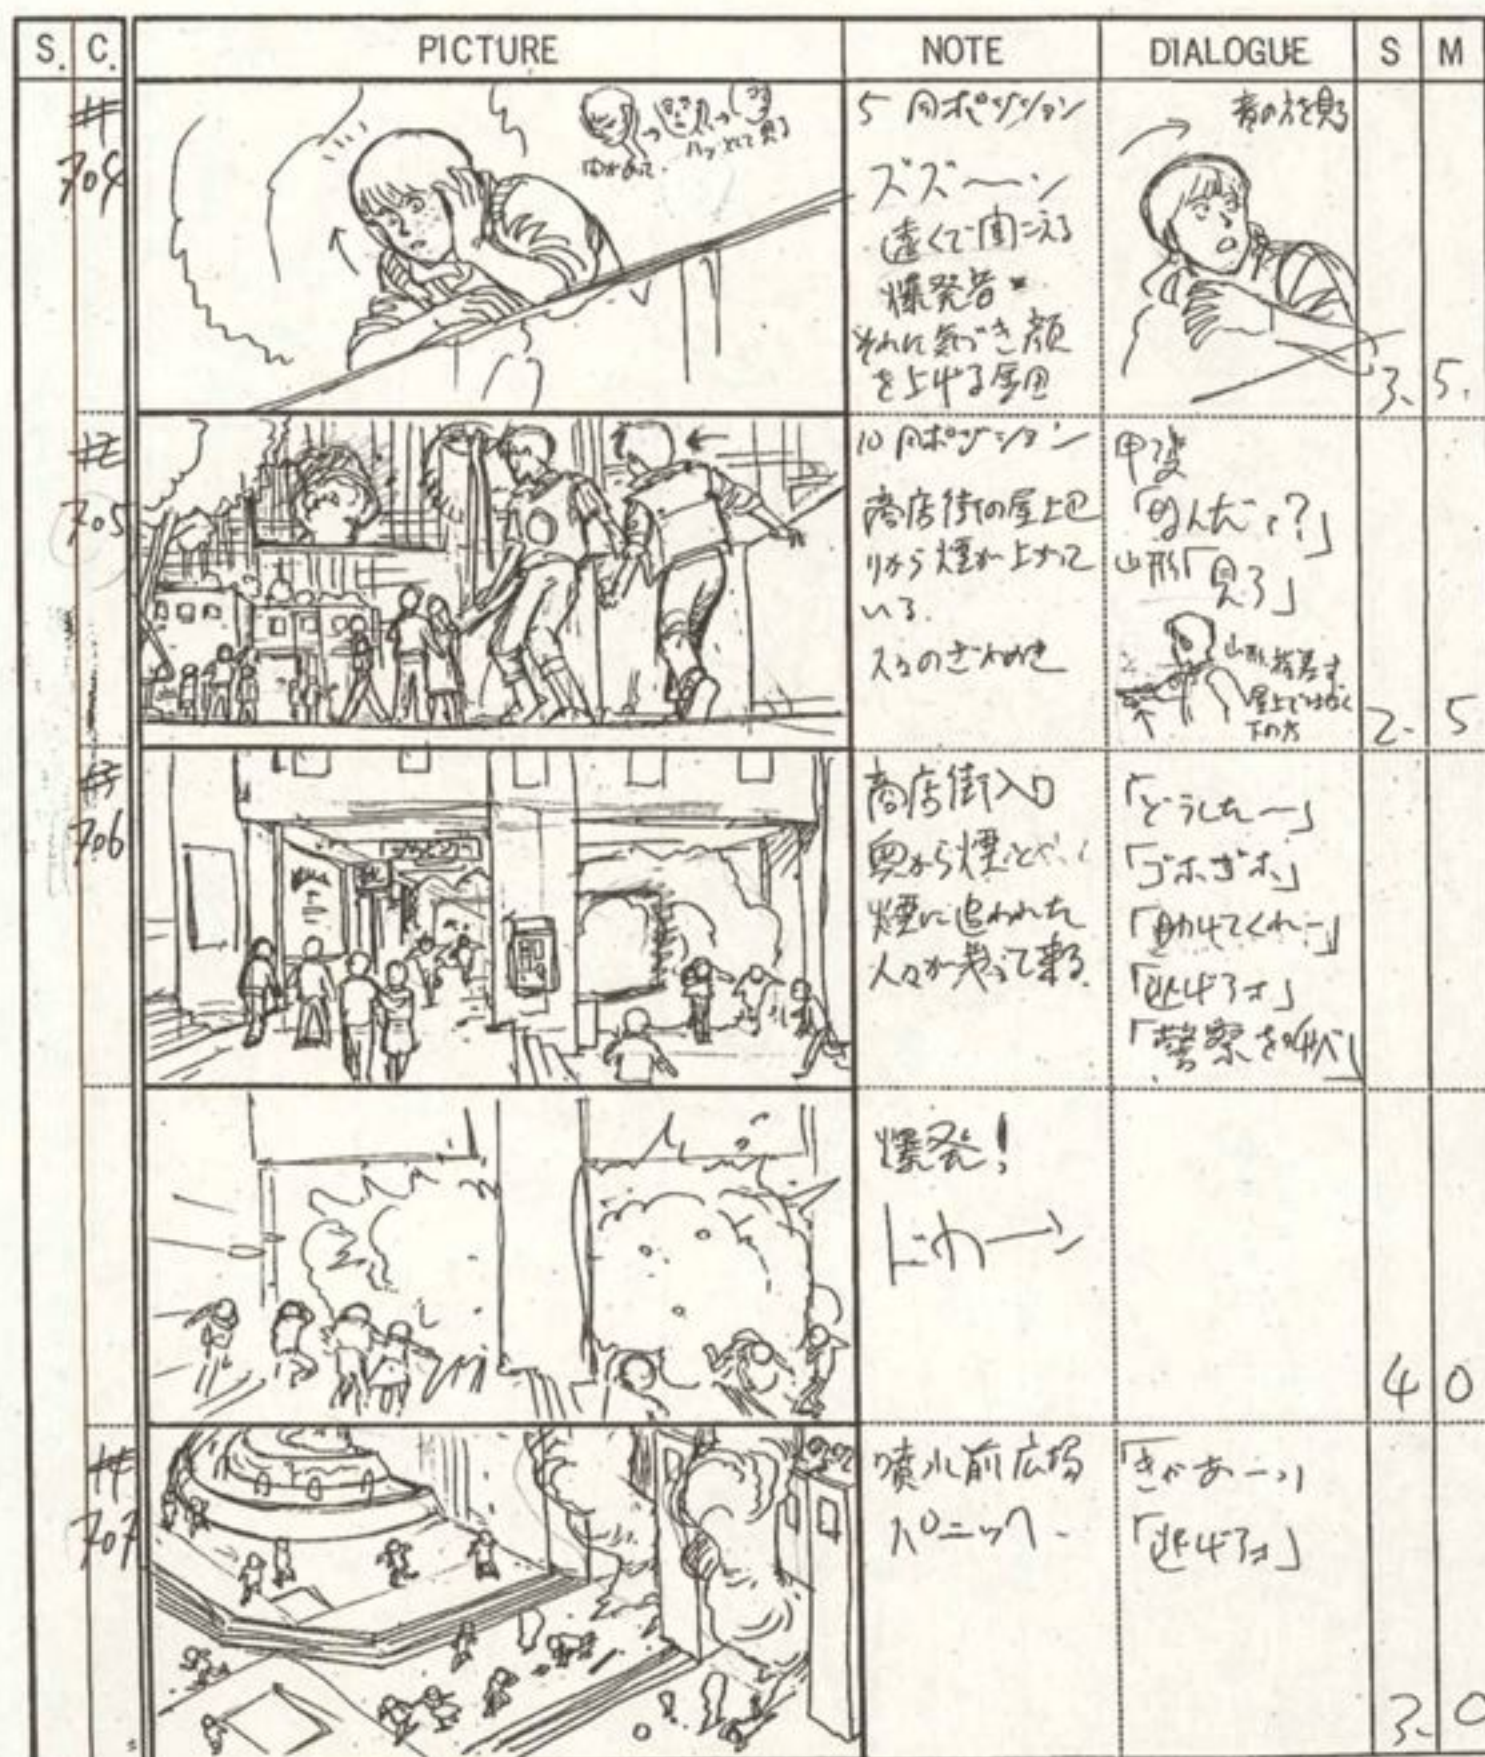 S. C. PICTURE NOTE DIALOGUE S M
#
704
間があって
ハッとして見る
5 同ポジション
ズズーン
遠くで聞こえる
爆発音
それに気づき顔
を上げる
音の方を見る
3. 5.
705
10 同ポジション
商店街の屋上辺
りから煙が上がって
いる.
人々のざわめき
甲斐
「なんだ?」
山形「見ろ」
山形、指差す
屋上ではなく
下の方
2- 5
706
商店街入口
奥から煙
煙に追われた
人々が走って来る.
「どうした―」
「ゴホゴホ」
「助けてくれー」
「逃げろォ」
「警察を呼べ」
爆発!
ドカーン
4 0
#
707
噴水前広場
パニックへ.
「きゃあーッ」
「逃げろォ」
3. 0